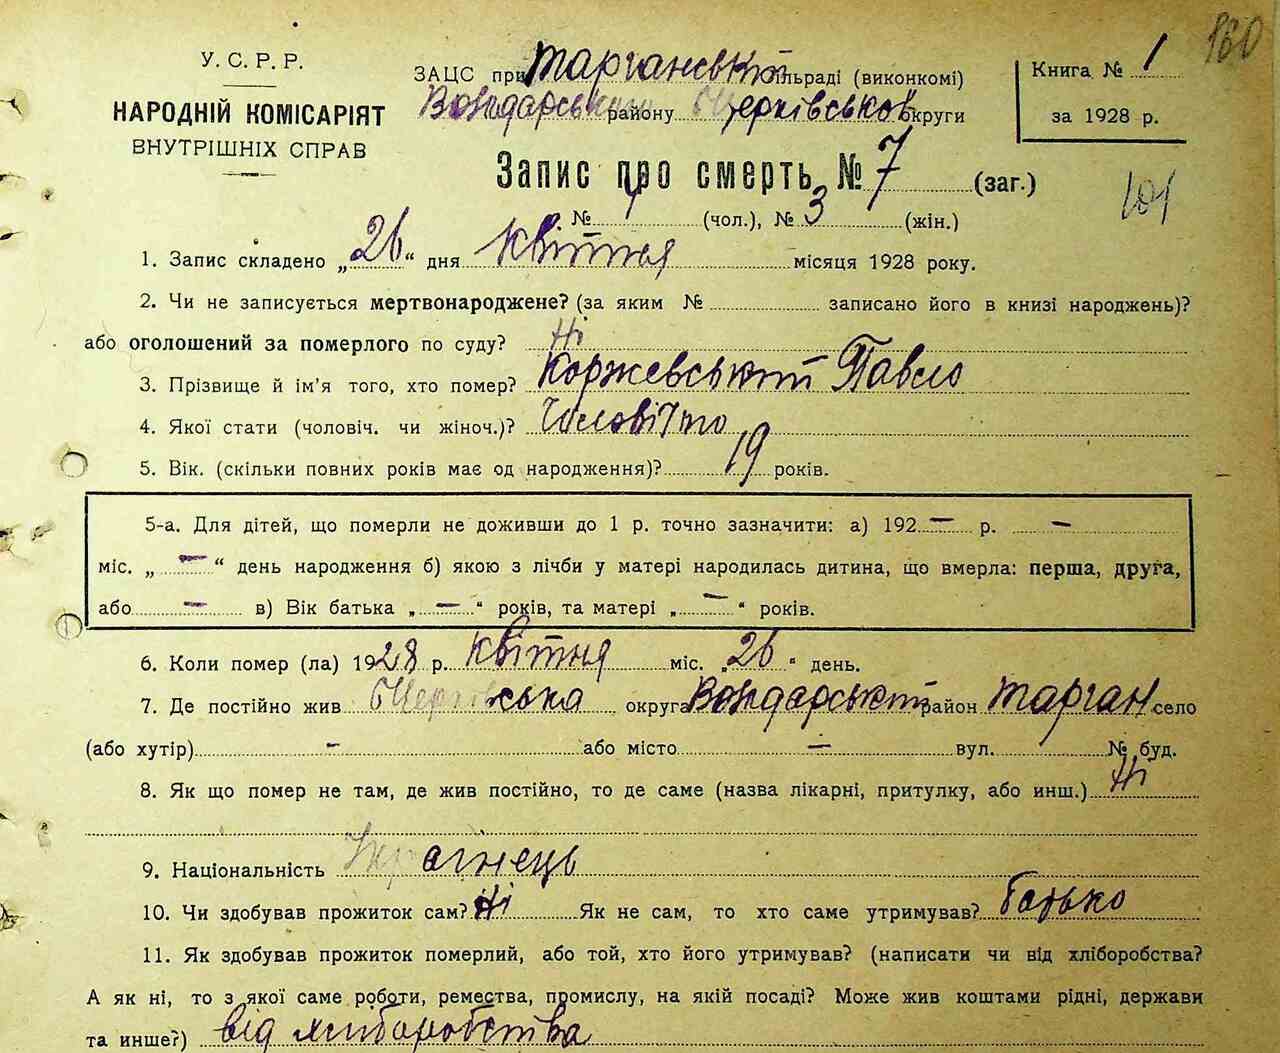 160
У. С. Р. Р.
НАРОДНІЙ КОМІСАРІЯТ
ВНУТРІШНІХ СПРАВ
ЗАЦС при Тарганський сільраді (виконкомі)
Володарського району БЦерківської округи
Книга № 1
за 1928 р.
Запис про смерть № 7 (заг.)
101
№ 4 (чол.), № 3 (жін.)
1. Запис складено „26“ дня квітня місяця 1928 року.
2. Чи не записується мертвонароджене? (за яким № записано його в книзі народжень)?
або оголошений за померлого по суду? Ні
3. Прізвище й ім'я того, хто помер? Коржевський Павло
4. Якої стати (чоловіч. чи жіноч.)?
5. Вік. (скільки повних років має од народження)? 19 років.
5-а. Для дітей, що померли не доживши до 1 р. точно зазначити: а) 192 — р. —
міс. „ — “ день народження б) якою з лічби у матері народилась дитина, що вмерла: перша, друга,
або — в) Вік батька „ — “ років, та матері „ — “ років.
6. Коли помер (ла) 1928 р. квітня міс. „26“ день.
7. Де постійно жив БЦерківська округа Володарський район Тарган село
(або хутір) - або місто — вул. № буд.
8. Як що помер не там, де жив постійно, то де саме (назва лікарні, притулку, або инш.) Ні
9. Національність Украінець
10. Чи здобував прожиток сам? Ні Як не сам, то хто саме утримував? батько
11. Як здобував прожиток померлий, або той, хто його утримував? (написати чи від хліборобства?
А як ні, то з якої саме роботи, ремества, промислу, на якій посаді? Може жив коштами рідні, держави
та инше?) від хліборобства